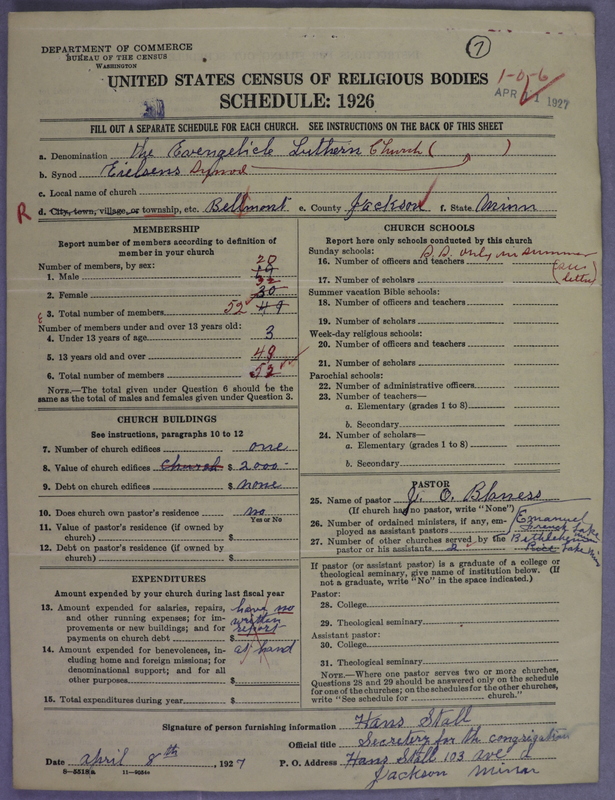 7
DEPARTMENT OF COMMERCE
BUREAU OF THE CENSUS
WASHINGTON
UNITED STATES CENSUS OF RELIGIOUS BODIES
1-0-6
SCHEDULE: 1926
APR 11 1927
FILL OUT A SEPARATE SCHEDULE FOR EACH CHURCH. SEE INSTRUCTIONS ON THE BACK OF THIS SHEET
a. Denomination the Evengelicle Luthern Church ( )
b. Synod Eielsens Synod
c. Local name of church
R d. City, town, village, or township, etc. Bellmont e. County Jackson f. State Minn
MEMBERSHIP
Report number of members according to definition of
member in your church
Number of members, by sex: 20
1. Male 19
32
2. Female 30
3. Total number of members 52 49
Number of members under and over 13 years old:
4. Under 13 years of age 3
5. 13 years old and over 49
6. Total number of members 52
NOTE.—The total given under Question 6 should be
the same as total of males and females given under Question 3.
CHURCH BUILDINGS
See instructions, paragraphs 10 to 12
7. Number of church edifices one
8. Value of church edifices Church $ 2000-
9. Debt on church edifices $ none
10. Does church own pastor's residence? no
Yes or No
11. Value of pastor's residence (if owned by
church) $
12. Debt on pastor's residence (if owned by
church) $
EXPENDITURES
Amount expended by your church during last fiscal year
13. Amount expended for salaries, repairs, have no
and other running expenses; for im- written
provements or new buildings; and for report
payments on church debt $
14. Amount expended for benevolences, in- at hand
cluding home and foreign missions; for
denominational support; and for all
other purposes $
15. Total expenditures during year $
CHURCH SCHOOLS
Report here only schools conducted by this church
Sunday schools: S. S. only in summer
16. Number of officers and teachers
(see
17. Number of scholars letter)
Summer vacation Bible schools:
18. Number of officers and teachers
19. Number of scholars
Week-day religious schools:
20. Number of officers and teachers
21. Number of scholars
Parochial schools:
22. Number of administrative officers
23. Number of teachers—
a. Elementary (grades 1 to 8)
b. Secondary
24. Number of scholars—
a. Elementary (grades 1 to 8)
b. Secondary
PASTOR
25. Name of pastor J. O. Blaness
(If church had no pastor, write "None")
26. Number of ordained ministers, if any, em- Emanuel
ployed as assistant pastors Lake
27. Number of other churches served by the Bethlehem
pastor or his assistants 2 Rice Lake
If pastor (or assistant pastor) is a graduate of a college or
theological seminary, give name of institution below. (If
not a graduate, write "No" in the space indicated.)
Pastor:
28. College
29. Theological seminary
Assistant pastor:
30. College
31. Theological seminary
NOTE.—Where one pastor serves two or more churches,
Questions 28 and 29 should be answered only on the schedule
for one of the churches; on the schedules for the other churches,
write "See schedule for church."
Signature of person furnishing information Hans Stall
Official title Secretery for the congrigation
Date april 8th, 1927 P. O. Address Hans Stall 103 we d
8-5518a 11-9564c Jackson Minn